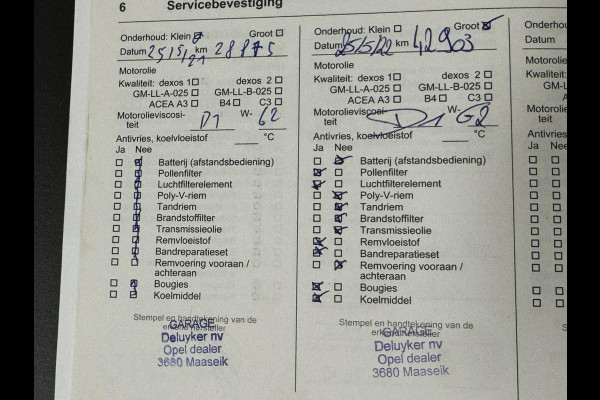 6 Servicebevestiging
Onderhoud: Klein Groot
Datum 25/5/21 km
Motorolie
Kwaliteit: dexos 1 dexos 2
GM-LL-A-025 GM-LL-B-025
ACEA A3 B4 C3
Motorolieviscosi-
teit D1 W- G2
Antivries, koelvloeistof °C
Ja Nee
Batterij (afstandsbediening)
Pollenfilter
Luchtfilterelement
Poly-V-riem
Tandriem
Brandstoffilter
Transmissieolie
Remvloeistof
Bandreparatieset
Remvoering vooraan /
achteraan
Bougies
Koelmiddel
Stempel en handtekening van de
GARAGE
Deluyker nv
Opel dealer
3680 Maaseik
Onderhoud: Klein Groot
Datum 25/5/22 km 42903
Motorolie
Kwaliteit: dexos 1 dexos 2
GM-LL-A-025 GM-LL-B-025
ACEA A3 B4 C3
Motorolieviscosi-
teit D1 W- G2
Antivries, koelvloeistof °C
Ja Nee
Batterij (afstandsbediening)
Pollenfilter
Luchtfilterelement
Poly-V-riem
Tandriem
Brandstoffilter
Transmissieolie
Remvloeistof
Bandreparatieset
Remvoering vooraan /
achteraan
Bougies
Koelmiddel
Stempel en handtekening van de
GARAGE
Deluyker nv
Opel dealer
3680 Maaseik
Onderhoud:
Datum
Motorolie
Kwaliteit:
GM-LL-A
Motorolie
teit
Antivries,
Ja Nee